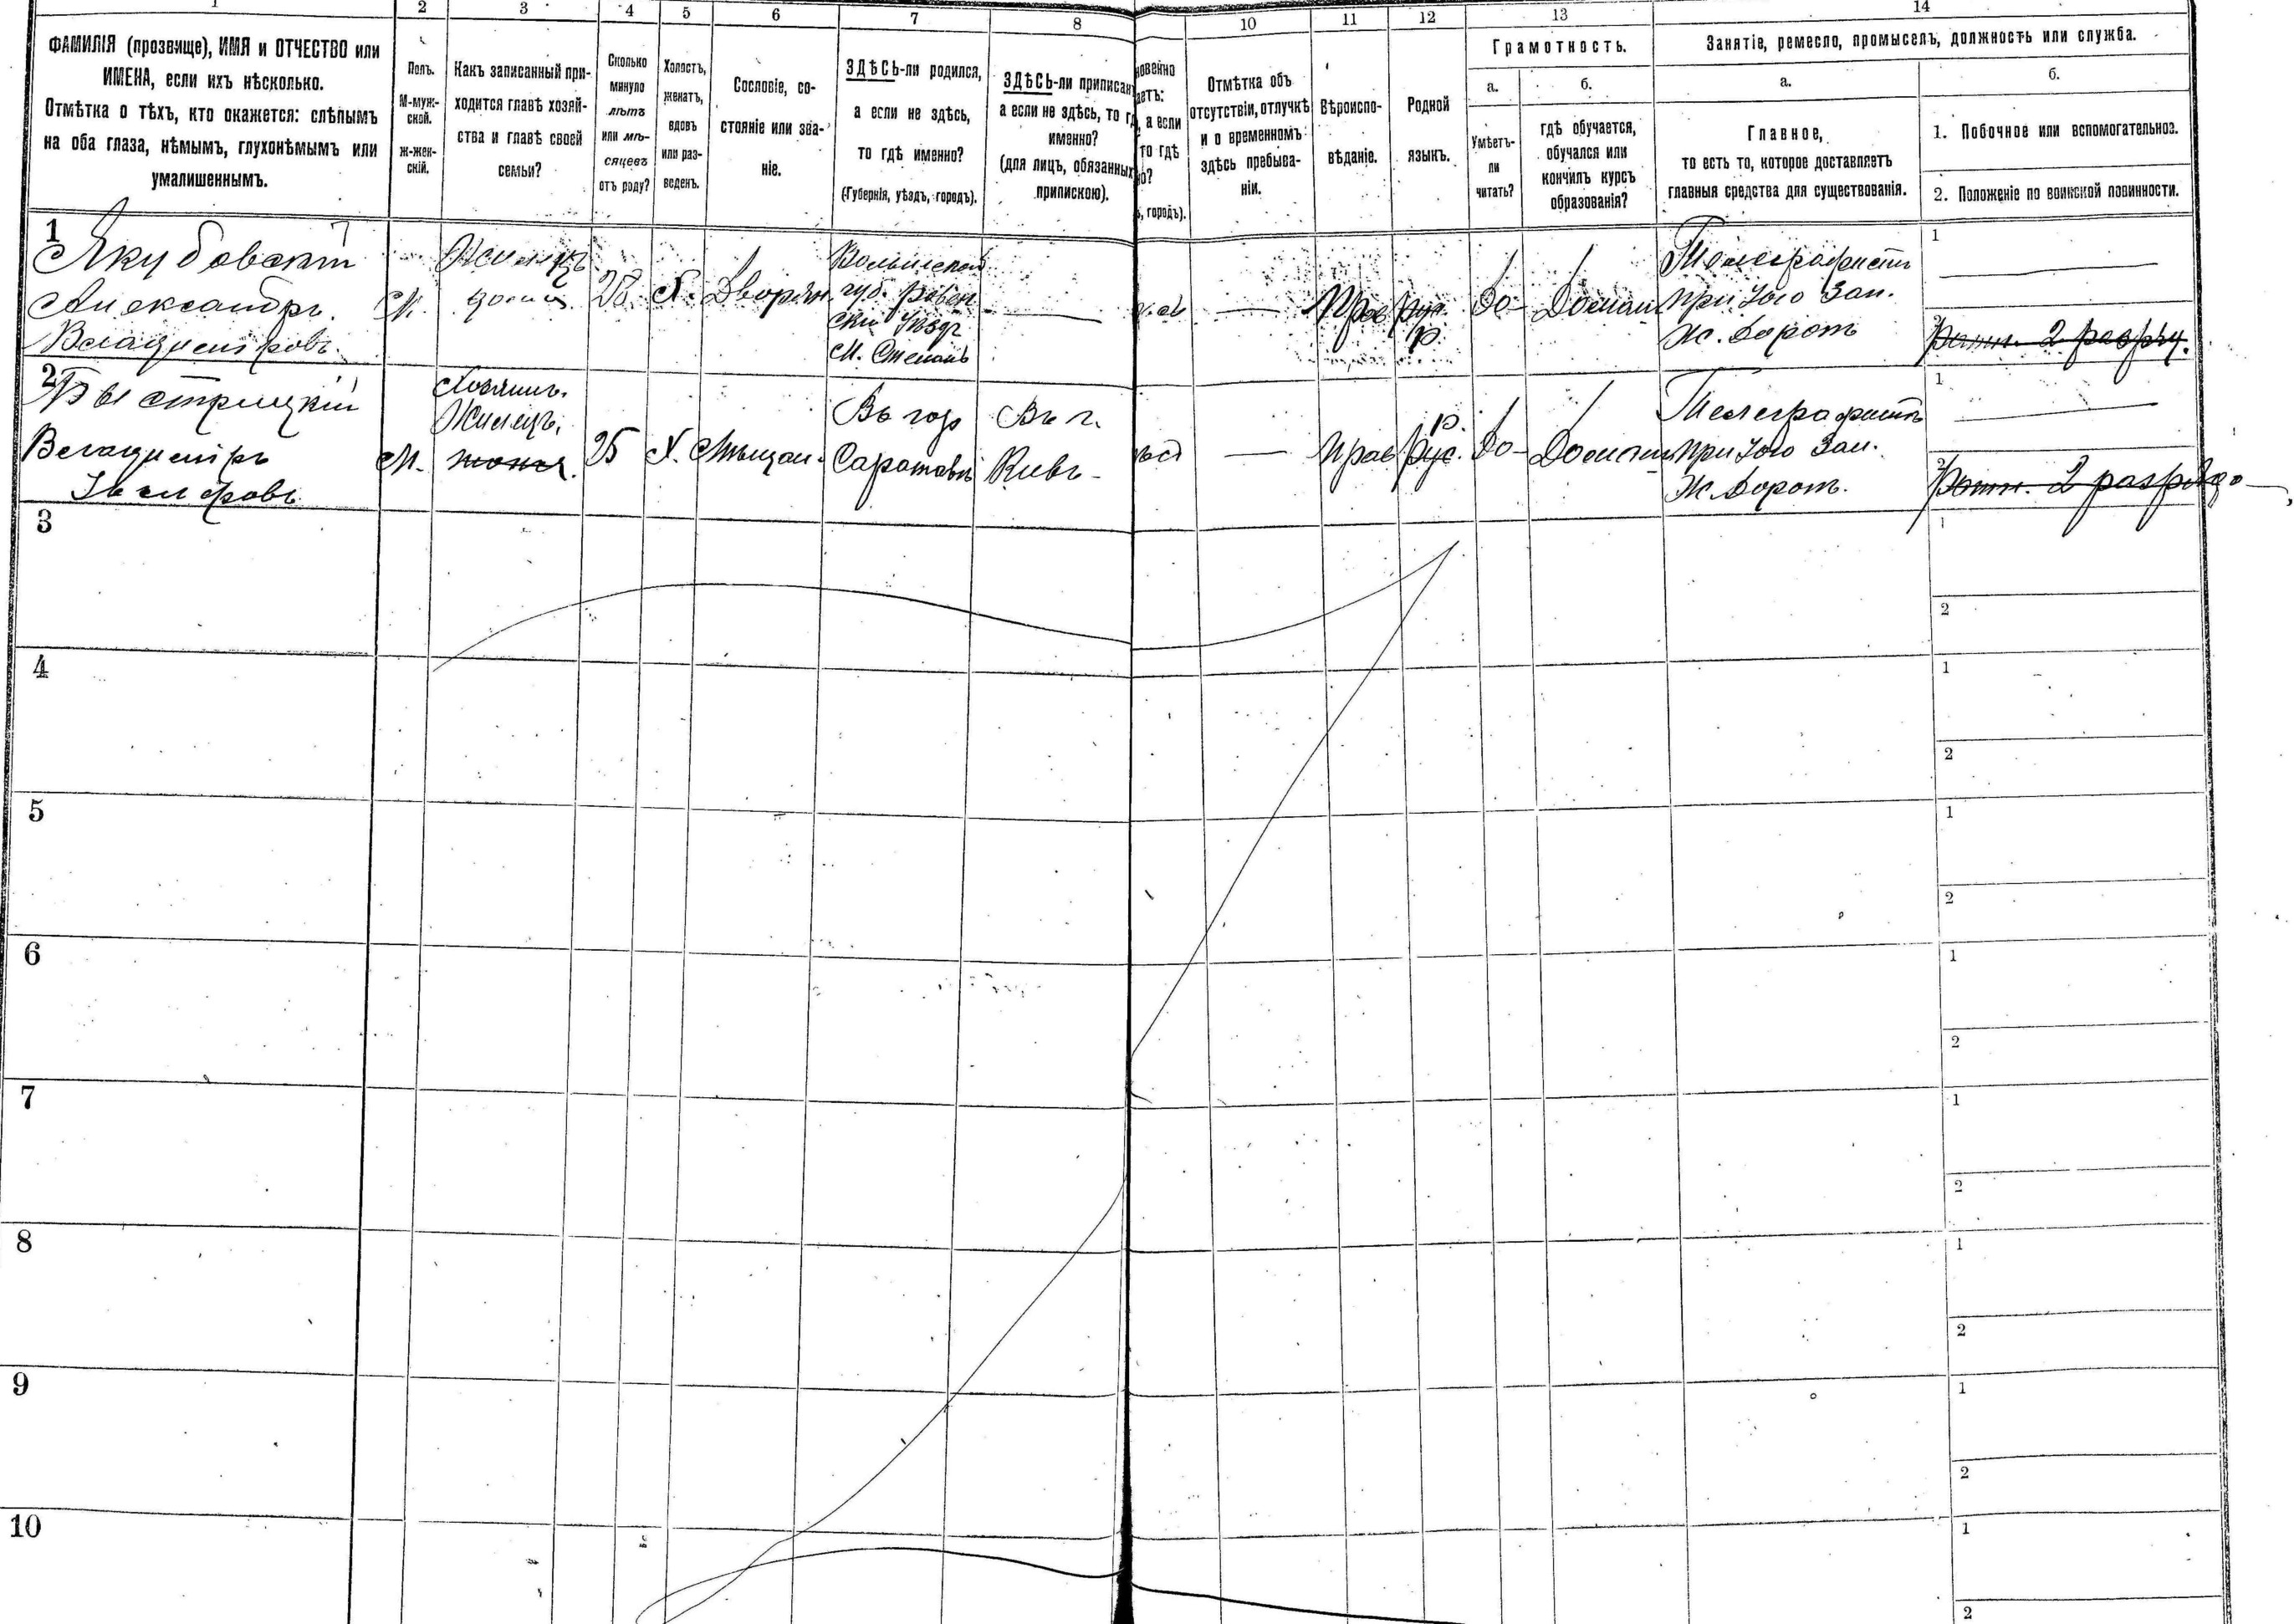 1 2 3 4 5 6 7 8 10 11 12 13 14
ФАМИЛІЯ (прозвище), ИМЯ и ОТЧЕСТВО или
ИМЕНА, если ихъ нѣсколько.
Отмѣтка о тѣхъ, кто окажется: слѣпымъ
на оба глаза, нѣмымъ, глухонѣмымъ или
умалишеннымъ.
Полъ.
М-муж-
ской.
ж-жен-
скій.
Какъ записанный при-
ходится главѣ хозяй-
ства и главѣ своей
семьи?
Сколько
минуло
лѣтъ
или мѣ-
сяцевъ
отъ роду?
Холостъ,
женатъ,
вдовъ
или раз-
веденъ.
Сословіе, со-
стояніе или зва-
ніе.
ЗДѢСЬ-ли родился,
а если не здѣсь,
то гдѣ именно?
(Губернія, уѣздъ, городъ).
ЗДѢСЬ-ли приписан
а если не здѣсь, то гд
именно?
(для лицъ, обязанных
припискою).
новенно
аетъ:
, а если
то гдѣ
но?
ъ, городъ).
Отмѣтка объ
отсутствіи, отлучкѣ
и о временномъ
здѣсь пребыва-
ніи.
Вѣроиспо-
вѣданіе.
Родной
языкъ.
Грамотность.
а.
Умѣетъ-
ли
читать?
б.
гдѣ обучается,
обучался или
кончилъ курсъ
образованія?
Занятіе, ремесло, промыселъ, должность или служба.
а.
Главное,
то есть то, которое доставляетъ
главныя средства для существованія.
б.
1. Побочное или вспомогательное.
2. Положеніе по воинской повинности.
1
Якубовскій
Александръ
Владиміровъ
М.
Жилецъ
28
Х.
Дворян.
Волынской
губ. Ровен
ский Уѣздъ
М. Степань
—
—
Прав
рус.
р.
Да
Домаш
Телеграфистъ
при Юго Зап.
Ж. Дорогъ
1
2
Ратн. 2 разряд.
2
Быстрицкій
Владиміръ
М.
Хозяинъ.
Жилецъ.
25
Х.
Мѣщан.
Въ горо
Саратовѣ
Въ г.
Кіевѣ
—
Прав
р.
рус.
Да
Домаш
Телеграфистъ
при Юго Зап.
Ж. Дорогъ.
1
2
Ратн. 2 разряда
3
1
2
4
1
2
5
1
2
6
1
2
7
1
2
8
1
2
9
1
2
10
1
2